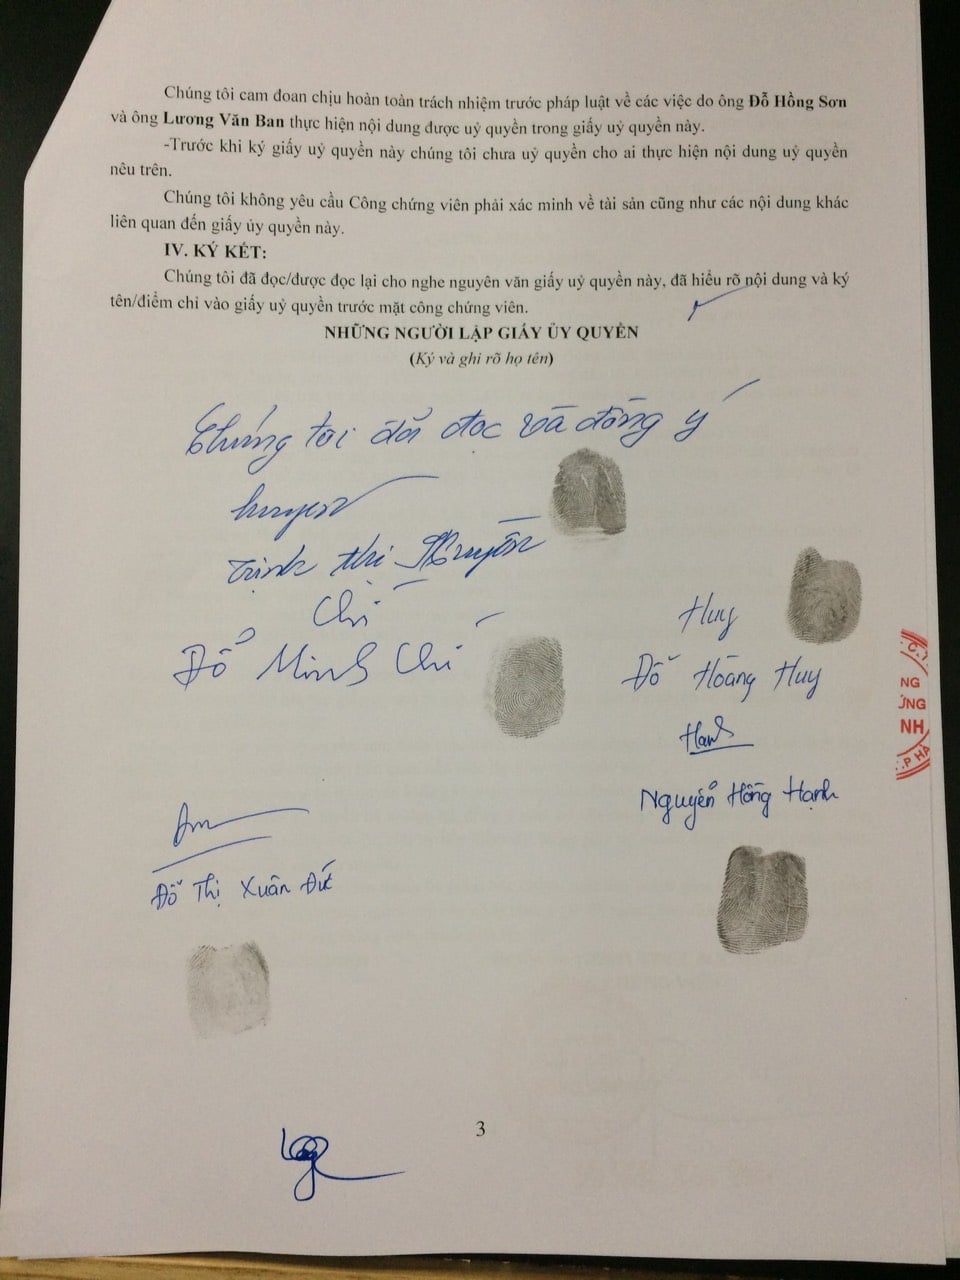 Chúng tôi cam đoan chịu hoàn toàn trách nhiệm trước pháp luật về các việc do ông Đỗ Hồng Sơn
và ông Lương Văn Ban thực hiện nội dung được uỷ quyền trong giấy uỷ quyền này.
-Trước khi ký giấy uỷ quyền này chúng tôi chưa uỷ quyền cho ai thực hiện nội dung uỷ quyền
nêu trên.
Chúng tôi không yêu cầu Công chứng viên phải xác minh về tài sản cũng như các nội dung khác
liên quan đến giấy ủy quyền này.
IV. KÝ KẾT:
Chúng tôi đã đọc/được đọc lại cho nghe nguyên văn giấy uỷ quyền này, đã hiểu rõ nội dung và ký
tên/điểm chỉ vào giấy uỷ quyền trước mặt công chứng viên.
NHỮNG NGƯỜI LẬP GIẤY ỦY QUYỀN
(Ký và ghi rõ họ tên)
Chúng tôi đã đọc và đồng ý
Trịnh thị
Chí
Đỗ Minh Chí
Huy
Đỗ Hoàng Huy
Hạnh
Nguyễn Hồng Hạnh
Đỗ Thị Xuân Đức
NG
ỨNG
NH
P HÀ
3